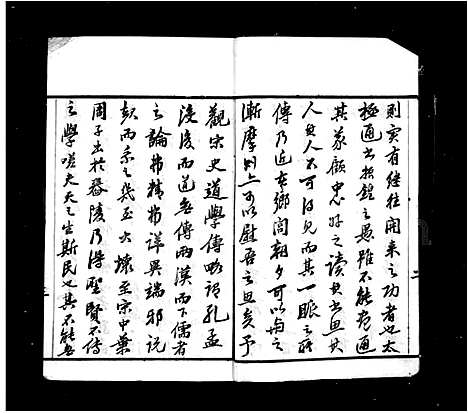 則實有繼往開來之功者也太
極通書按銓之愚雖不能光通
其蒙顧忠好之讀其書思其
人其人不可得見而其一脈之
傳乃近在鄉閭朝夕可以與之
漸摩則上可以慰吾之思矣予
觀宋史道學傳略謂孔孟
沒後而道無傳兩漢而下儒者
之論弗精弗詳異端邪說
起而乘之幾至大壞至宋中葉
周子出於舂陵乃得聖賢不傳
之學嗟夫天之生斯民也其不能無